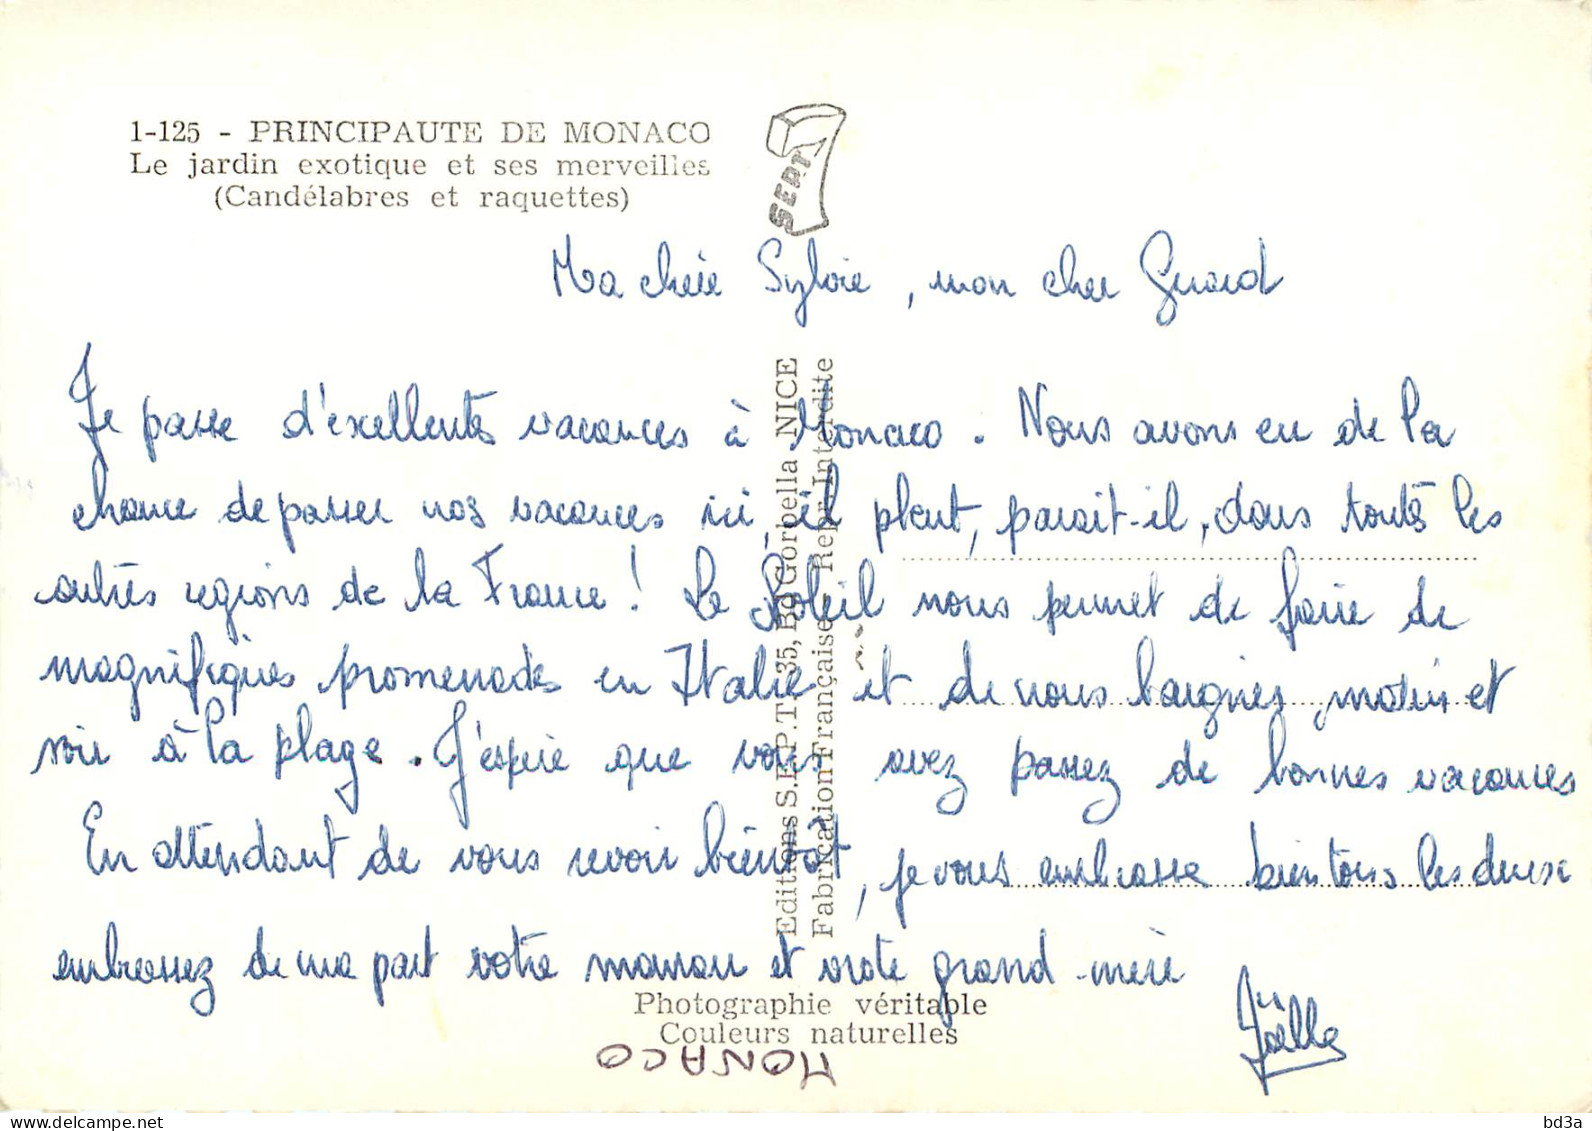 1-125 - PRINCIPAUTE DE MONACO
Le jardin exotique et ses merveilles
(Candélabres et raquettes)
SEPT
Ma chère Sylvie, mon cher Gérard
Je passe d'excellentes vacances à Monaco. Nous avons eu de la
chance de passer nos vacances ici, il pleut, parait-il, dans toutes les
autres régions de la France ! Le Soleil nous permet de faire de
magnifiques promenades en Italie et de nous baigner, matin et
soir à la plage. J'espère que vous avez passez de bonnes vacances
En attendant de vous revoir bientôt, je vous embrasse bien tous les deux
embrassez de ma part votre maman et votre grand-mère
Joëlle
Editions S.E.P.T. 35, Bd Gorbella NICE
Fabrication Française - Repr. Interdite
Photographie véritable
Couleurs naturelles
MONACO
delcampe.net
bd3a